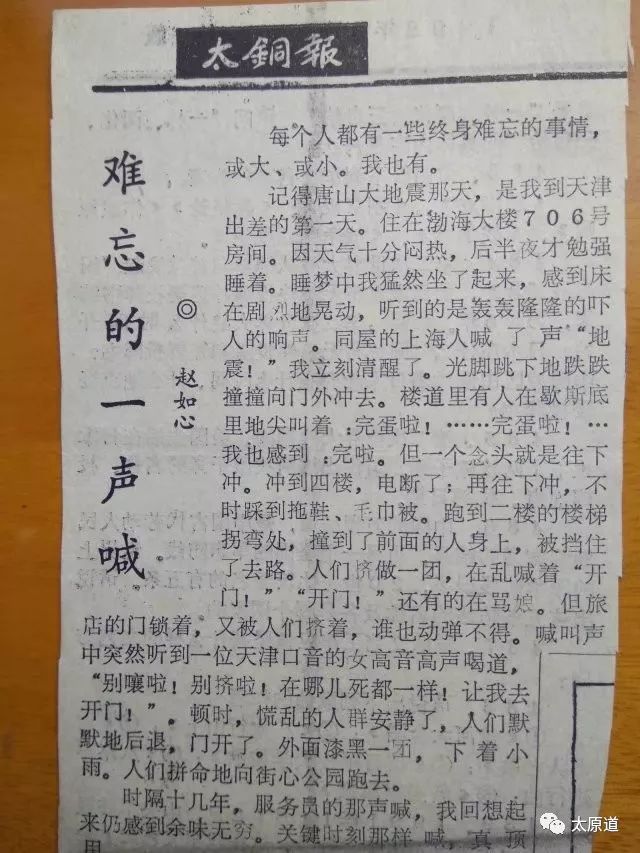 太銅報
难忘的一声喊
◎
赵如心
每个人都有一些终身难忘的事情，
或大、或小。我也有。
记得唐山大地震那天，是我到天津
出差的第一天。住在渤海大楼７０６号
房间。因天气十分闷热，后半夜才勉强
睡着。睡梦中我猛然坐了起来，感到床
在剧烈地晃动，听到的是轰轰隆隆的吓
人的响声。同屋的上海人喊了声“地
震！”我立刻清醒了。光脚跳下地跌跌
撞撞向门外冲去。楼道里有人在歇斯底
里地尖叫着：完蛋啦！……完蛋啦！…
我也感到：完啦。但一个念头就是往下
冲。冲到四楼，电断了；再往下冲，不
时踩到拖鞋、毛巾被。跑到二楼的楼梯
拐弯处，撞到了前面的人身上，被挡住
了去路。人们挤做一团，在乱喊着“开
门！”“开门！”还有的在骂娘。但旅
店的门锁着，又被人们挤着，谁也动弹不得。喊叫声
中突然听到一位天津口音的女高音高声喝道，
“别嚷啦！别挤啦！在哪儿死都一样！让我去
开门！”。顿时，慌乱的人群安静了，人们默
默地后退，门开了。外面漆黑一团，下着小
雨。人们拼命地向街心公园跑去。
时隔十几年，服务员的那声喊，我回想起
来仍感到余味无穷。关键时刻那样喊，真顶
用
太原道